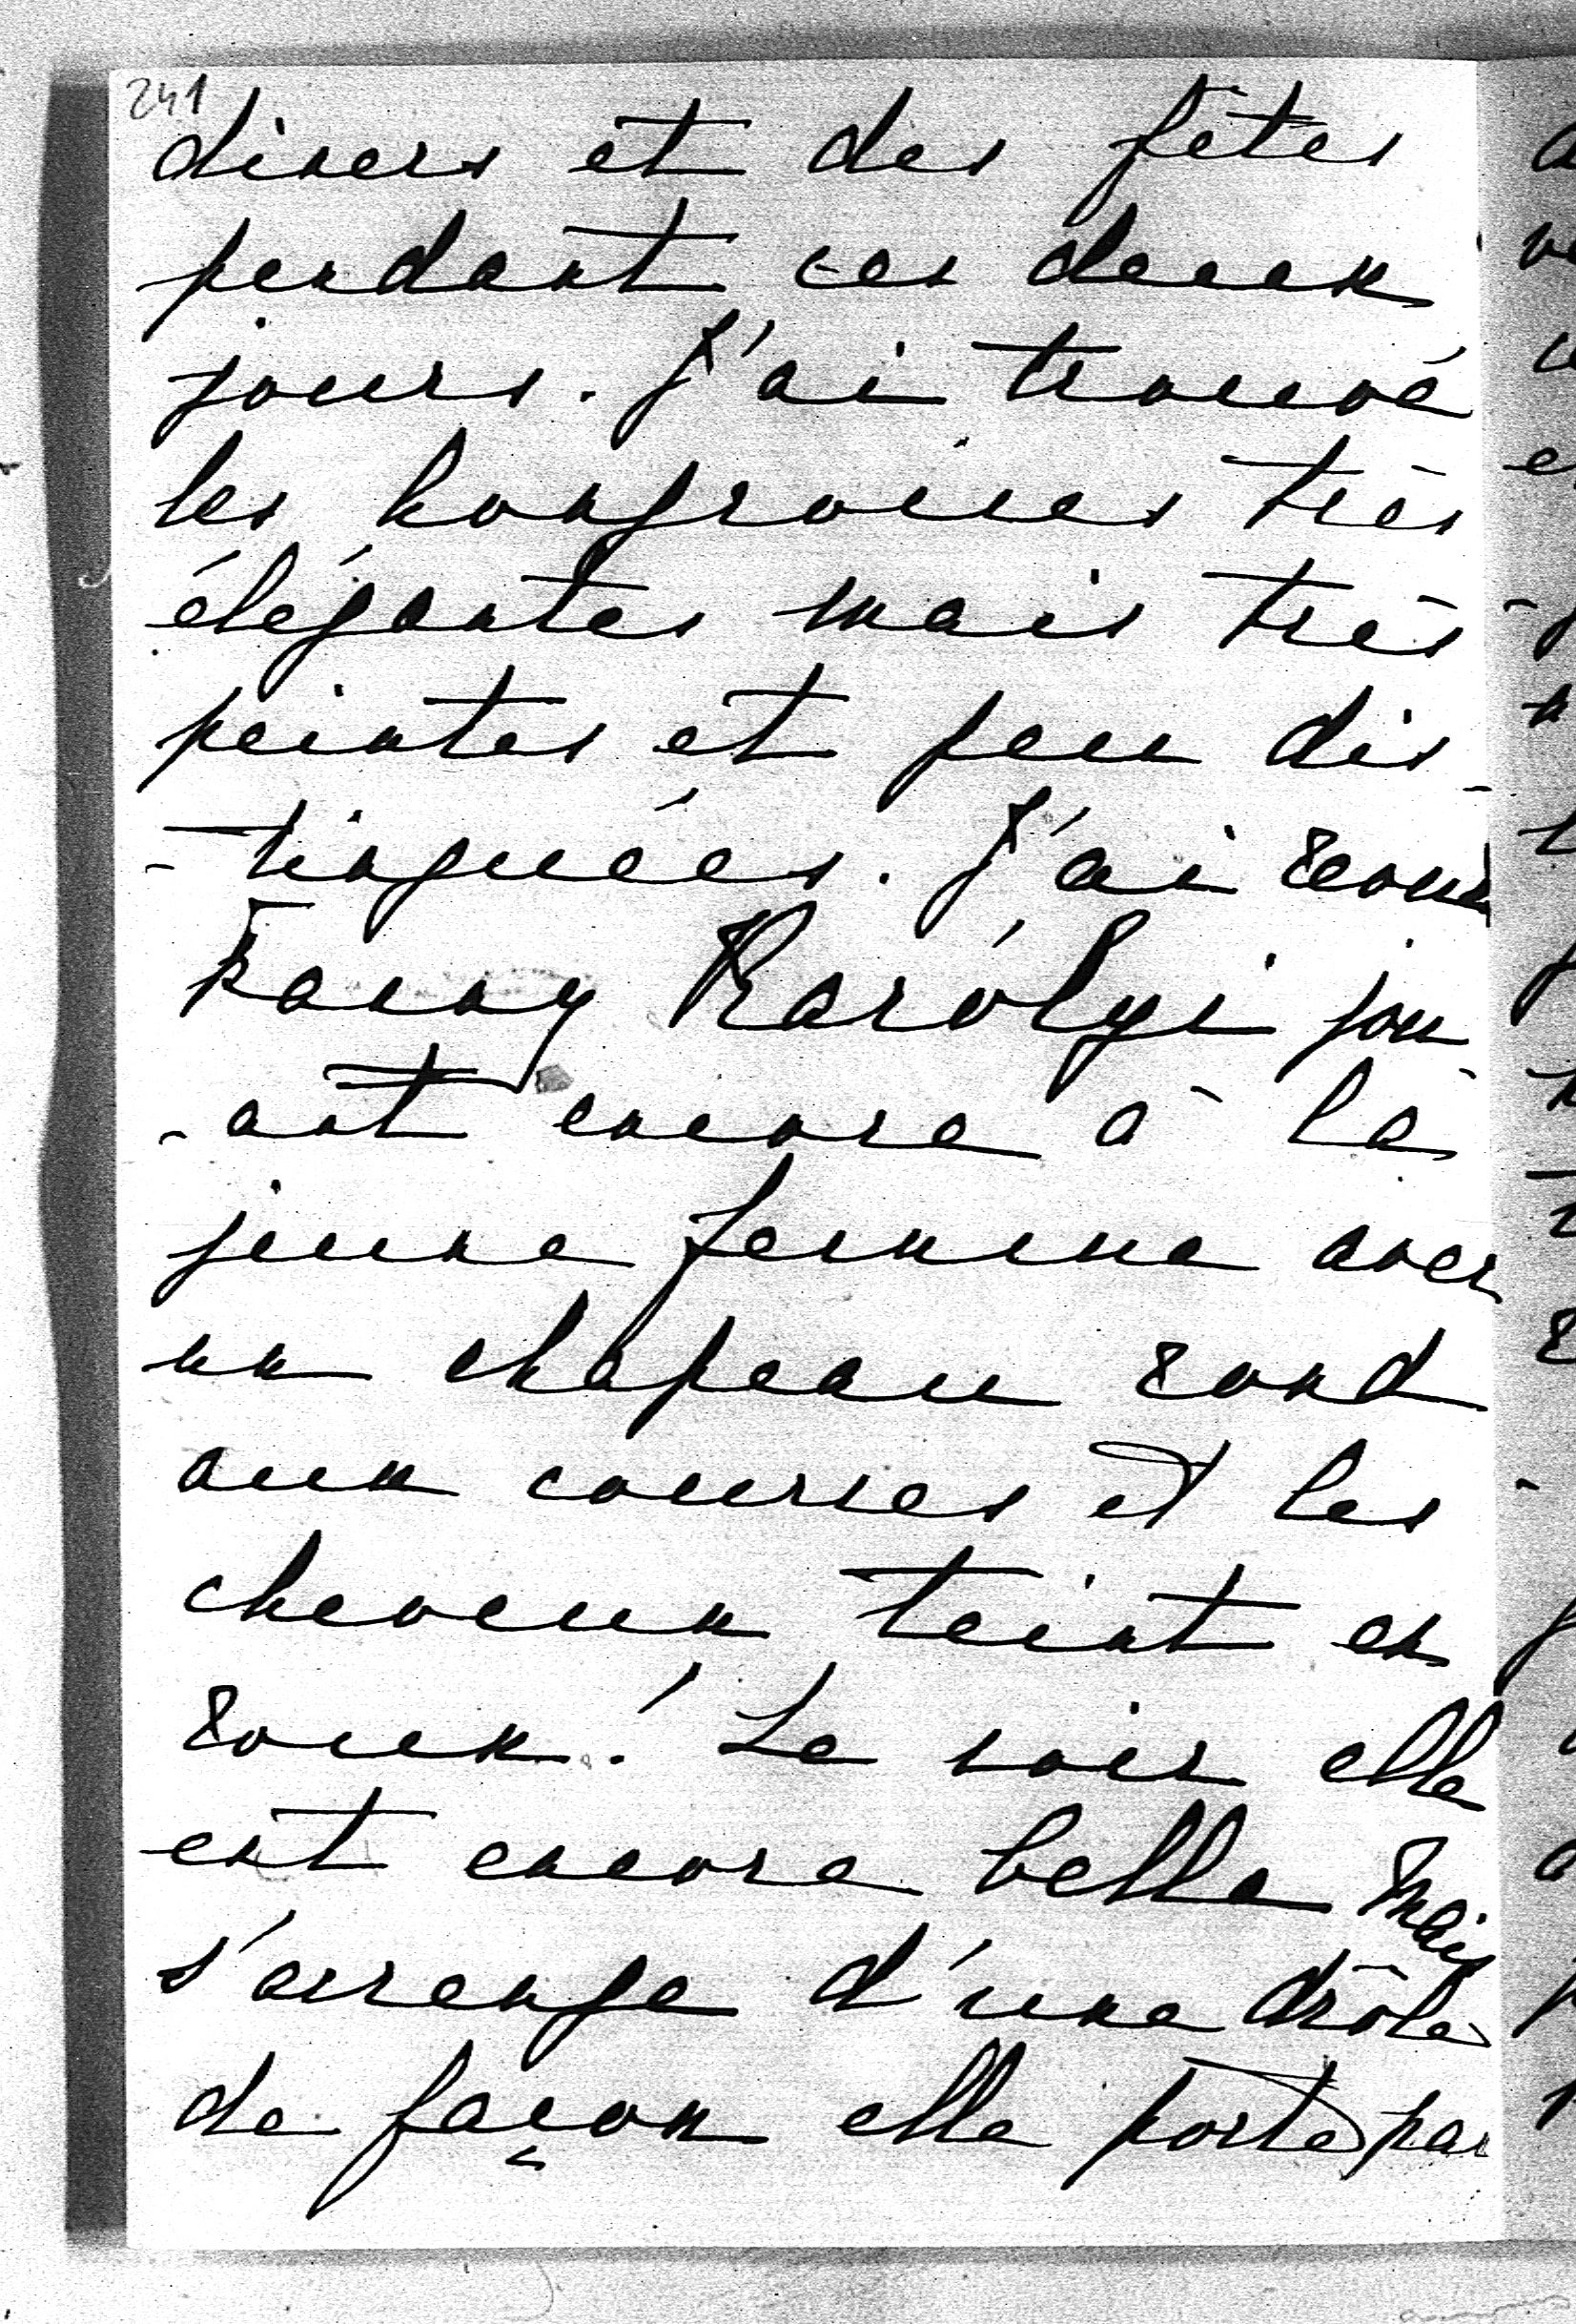 241
diners et des fêtes
pendant ces deux
jours. J'ai trouvé
les hongroises très
élégantes mais très
peintes et peu dis-
-tinguées. J'ai revu
Fanny Karólyi jou
-ant encore à la
jeune femme avec
un chapeau rond
aux courses et les
cheveux teint en
roux! Le soir elle
est encore belle mais
s'arrange d'une drôle
de façon elle porte par